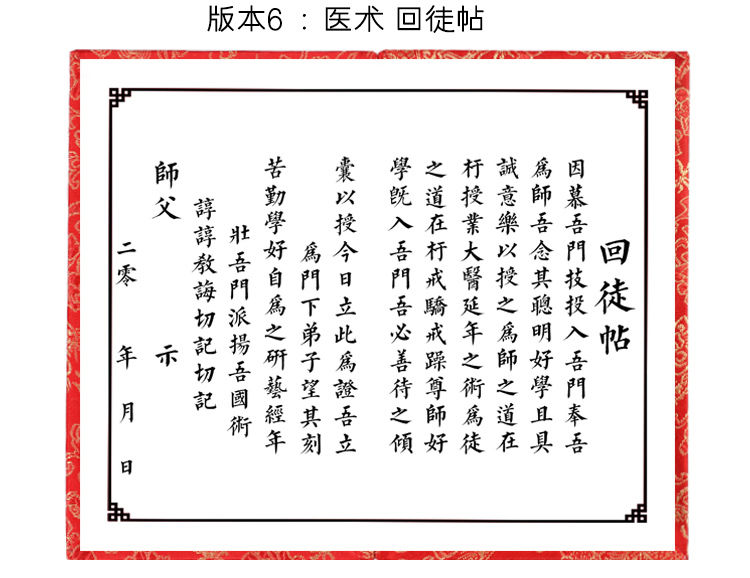 版本6 ：医术 回徒帖
回徒帖
因慕吾門技投入吾門奉吾
為師吾念其聰明好學且具
誠意樂以授之為師之道在
杅授業大醫延年之術為徒
之道在杅戒驕戒躁尊師好
學既入吾門吾必善待之傾
囊以授今日立此為證吾立
為門下弟子望其刻
苦勤學好自為之硏藝經年
壯吾門派揚吾國術
諄諄教誨切記切記
師父 示
二零 年 月 日